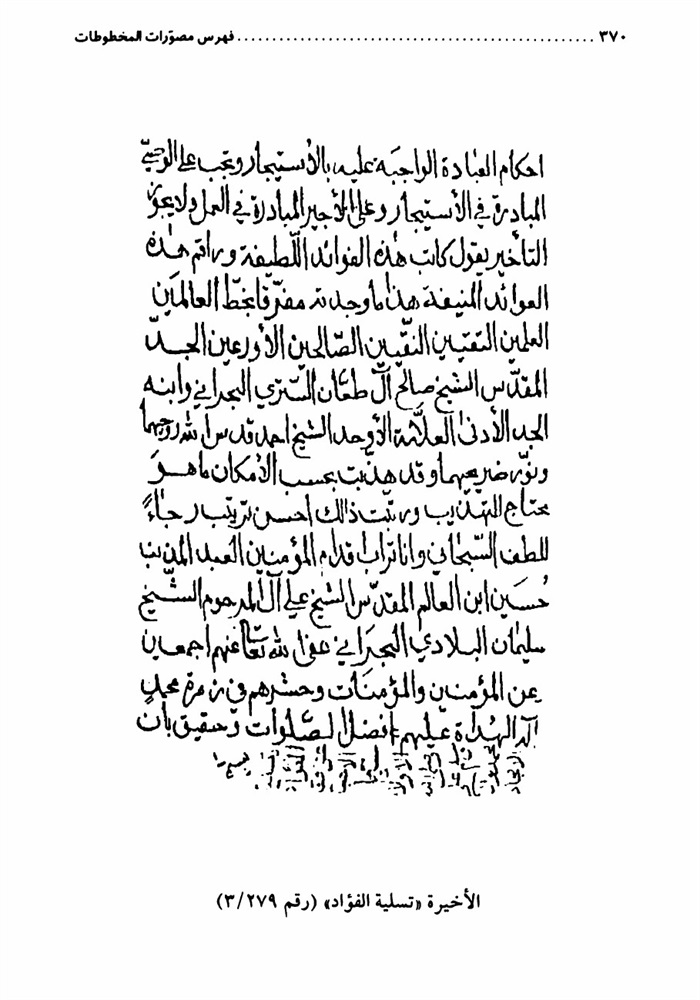 ٣٧٠ ........................................ فهرس مصوّرات المخطوطات
احكام العبادة الواجبة عليه بالأستيجار ويجب على الوصيّ
المبادرة في الأستيجار وعلى الأجير المبادرة في العمل ولا يجوز
التأخير يقول كاتب هذه الفوائد اللّطيفة وراقم هذه
العوائد المنيفة هذا ما وجدته مفرّقا بخطّ العالمين
العلمين التقيّين النقيّين الصّالحين الأورعين الجدّ
المقدّس الشيخ صالح آل طعّان السّتري البحراني وابنه
الجد الأدنى العلّامة الأوحد الشيخ احمد قدس الله روحيهما
ونوّر ضريحيهما وقد هذّبت بحسب الأمكان ما هو
محتاج للتهذيب ورتبت ذالك احسن ترتيب رجاءً
للطف السّبحاني وانا تراب اقدام المؤمنين العبد المذنب
حُسَين ابن العالم المقدّس الشيخ علي آل المرحوم الشّيخ
سليمان البلادي البحراني عفى الله تعالى عنهم اجمعين
وعن المؤمنين والمؤمنات وحشرهم في زمرة محمد
آله الهُداة عليهم افضل الصّلوات وحقيق بأن
الأخيرة «تسلية الفؤاد» (رقم ٣/٢٧٩)